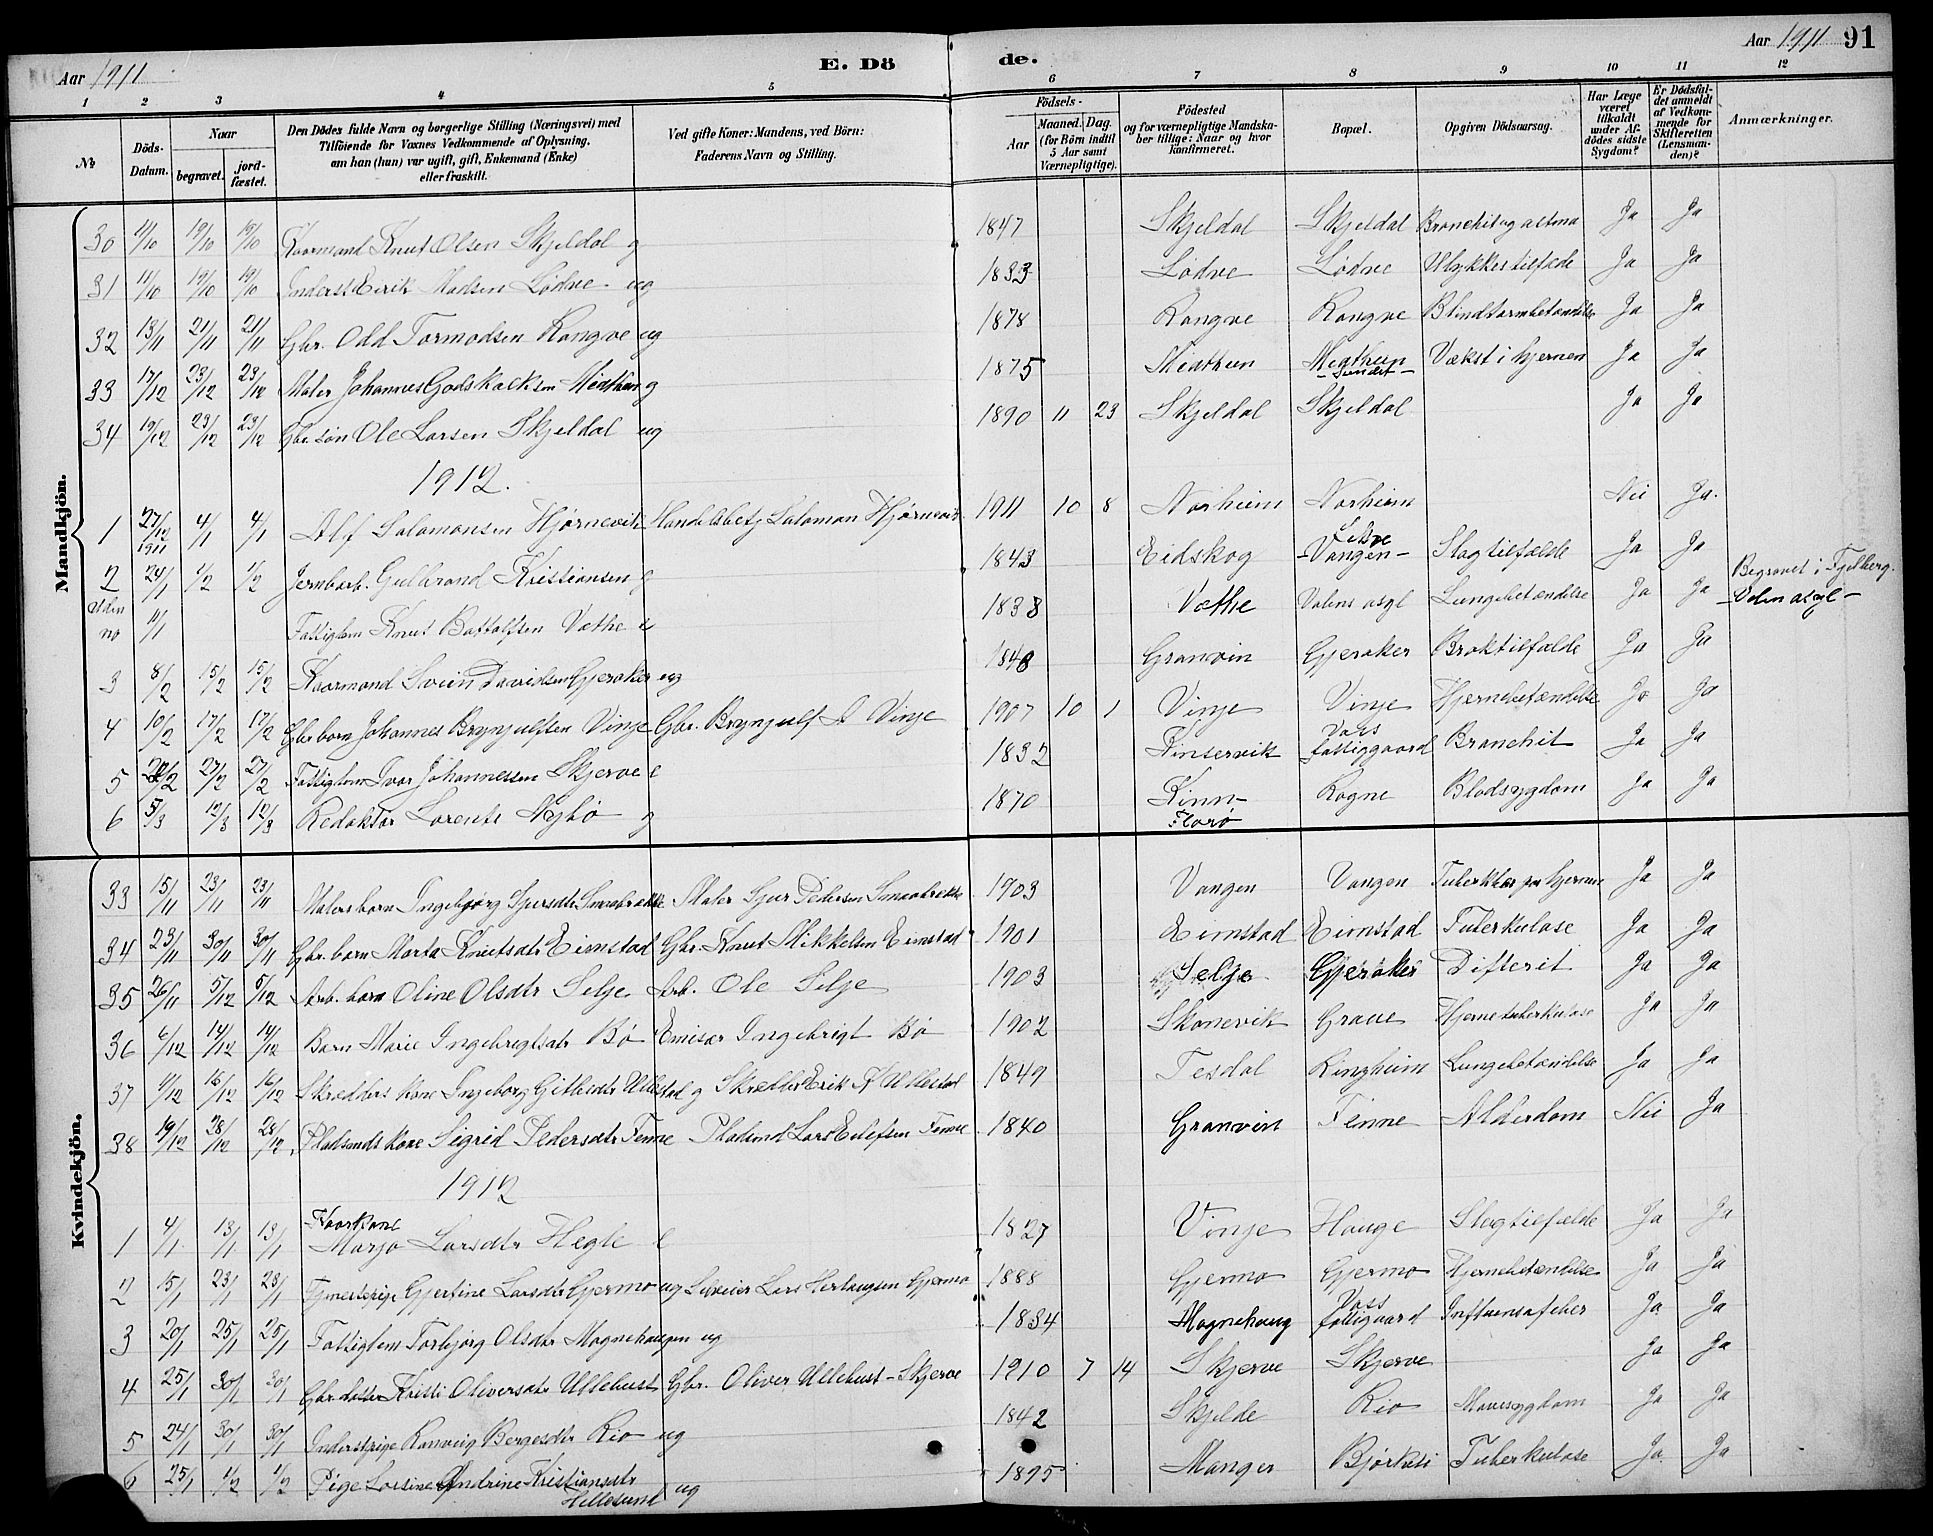 Aar 1911
E. Dö
de.
Aar 1911 91
1 2 3 4 5 6 7 8 9 10 11 12
№ Döds-Datum. Naar begravet. jord-fæstet. Den Dödes fulde Navn og borgerlige Stilling (Næringsvei) med Tilföiende for Voxnes Vedkommende af Oplysning, om han (hun) var ugift, gift, Enkemand (Enke) eller fraskilt. Ved gifte Koner: Mandens, ved Börn: Faderens Navn og Stilling. Födsels- Aar Maaned. Dag. (for Börn indtil 5 Aar samt Værnepligtige). Födested og for værnepligtige Mandskaber tillige: Naar og hvor konfirmeret. Bopæl. Opgiven Dödsaarsag. Har Læge været tilkaldt under Afdödes sidste Sygdom? Er Dödsfaldet anmeldt af Vedkommende for Skifteretten (Lensmanden)? Anmærkninger.
Mandkjön.
30 11/10 19/10 19/10 Kaarmand Knut Olsen Skjeldal g 1847 Skjeldal Skjeldal Bronchit og astma Ja Ja
31 11/10 19/10 19/10 Inderst Eirik Madsen Lødve ug 1833 Lødve Lødve Ulykkestilfæde Ja Ja
32 13/11 21/11 21/11 Gbr. Odd Tormodsen Rongve ug 1878 Rongve Rongve Blindtarmbetændelse Ja Ja
33 17/12 23/12 23/12 Maler Johannes Godskalksen Midthun g 1875 Midthun Midthun Vækst i hjernen Ja Ja
34 19/12 23/12 23/12 Gbr. søn Ole Larsen Skjeldal ug 1890 11 23 Skjeldal Skjeldal Ja Ja
1912.
1 27/12 1911 4/1 4/1 Alf Salamonsen Hjørnevik Handelsbetj Salamon Hjørnevik 1911 10 8 Norheim Norheim Nei Ja.
2 24/1 1/2 1/2 Jernbarb. Gulbrand Kristiansen g 1843 Eidskog Vangen Slagtilfælde Ja Ja
Uden no 11/1 Fattiglem Knut Bottolfsen Væthe e 1838 Væthe Valens asyl Lungebetændelse Ja Ja Begravet i Fjelberg. Valen asyl
3 8/2 15/2 15/2 Kaarmand Svein Davidsen Gjeraker ug 1848 Granvin Gjeraker Broktilfælde Ja Ja
4 10/2 17/2 17/2 Gbr barn Johannes Brynjulfsen Vinje Gbr. Brynjulf A Vinje 1907 10 1 Vinje Vinje Hjernebetændelse Ja Ja
5 20/2 27/2 27/2 Fattiglem Ivar Johannessen Skjerve e 1832 Kinservik Vors fattiggaard Bronchit Ja Ja
6 5/3 12/3 12/3 Redaktør Lorents Nybø g 1870 Kinn Florø Rogne Blodsygdom Ja Ja
Kvindekjön.
33 15/11 23/11 23/11 Malers barn Ingebjørg Sjursdtr Smaabrekke Maler Sjur Pedersen Smaabrekke 1903 Vangen Vangen Tuberklær paa hjernen Ja Ja
34 23/11 30/11 30/11 Gbr. barn Marta Knutsdtr Eimstad Gbr. Knut Mikkelsen Eimstad 1901 Eimstad Eimstad Tuberkulose Ja Ja
35 26/11 5/12 5/12 Arb. barn Oline Olsdtr Selje Arb. Ole Selje 1903 Selje Gjeraker Difterit Ja Ja
36 6/12 14/12 14/12 Barn Marie Ingebrigtsdtr Bø Emisær Ingebrigt Bø 1902 Skonevik Graue Hjernetuberkulose Ja Ja
37 9/12 16/12 16/12 Skredders kone Ingeborg Gitlesdtr Ullestad g Skredder Erik A Ullestad 1849 Tesdal Ringheim Lungebetændelse Ja Ja
38 19/12 28/12 28/12 Pladsmds kone Sigrid Pedersdtr Fenne Pladsmd Lars Eilefsen Fenne 1840 Granvin Fenne Alderdom Nei Ja
1912
1 4/1 13/1 13/1 Kaarkone Marjo Larsdtr Hegle e 1827 Vinje Hauge Slagtilfælde Ja Ja
2 15/1 23/1 23/1 Tjenestepige Gjertine Larsdtr Gjermo ug Lars Herlaugsen Gjermo 1888 Gjermo Gjermo Hjernebetændelse Ja Ja
3 20/1 25/1 25/1 Fattiglem Torbjørg Olsdtr Mognehaugen ug 1834 Mognehaug Voss fattiggaard Influensafeber Ja Ja
4 25/1 30/1 30/1 Gbr. datter Kristi Oliversdtr Ullehust Gbr. Oliver Ullehust - Skjerve 1910 7 14 Skjerve Skjerve Ja Ja
5 24/1 30/1 30/1 Inderstpige Ranveig Bergesdtr Rio ug 1842 Skjelde Rio Mavesygdom Ja Ja
6 25/1 1/2 1/2 Pige Larsine Andrine Kristiansdtr Hellesund ug 1895 Manger Tuberkulose Ja Ja